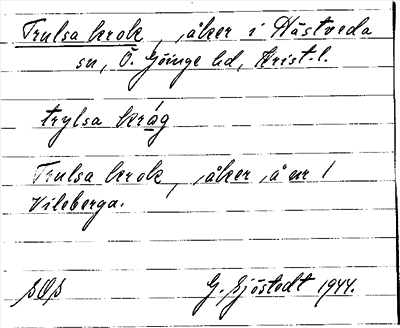 Trulsa krok, åker i Hästveda
sn, Ö. Göinge hd, Krist. l.
trylsa kråg
Trulsa krok, åker å nr 1
Vileberga.
G. Sjöstedt 1944.